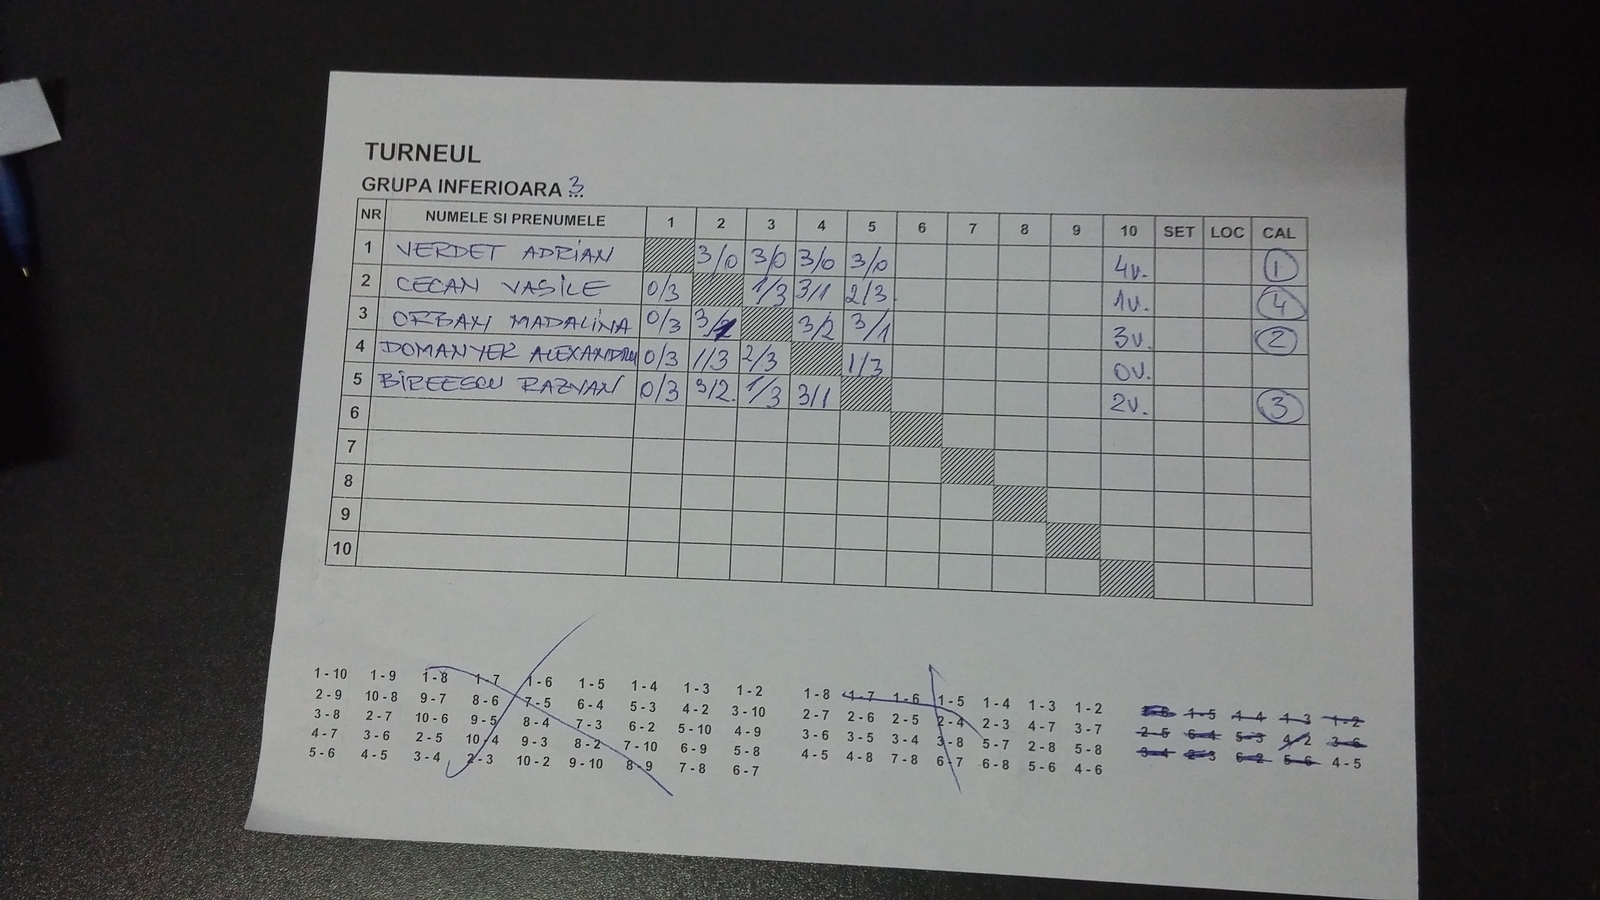 TURNEUL
GRUPA INFERIOARA 3
NR NUMELE SI PRENUMELE 1 2 3 4 5 6 7 8 9 10 SET LOC CAL
1 VERDET ADRIAN 3/0 3/0 3/0 3/0 4v. 1
2 CECAN VASILE 0/3 1/3 3/1 2/3 1v. 4
3 ORBAN MADALINA 0/3 3/1 3/2 3/1 3v. 2
4 DOMANYER ALEXANDRU 0/3 1/3 2/3 1/3 0v.
5 BIREESCU RAZVAN 0/3 3/2. 1/3 3/1 2v. 3
6
7
8
9
10
1 - 10 1 - 9 1 - 8 1 - 7 1 - 6 1 - 5 1 - 4 1 - 3 1 - 2
2 - 9 10 - 8 9 - 7 8 - 6 7 - 5 6 - 4 5 - 3 4 - 2 3 - 10
3 - 8 2 - 7 10 - 6 9 - 5 8 - 4 7 - 3 6 - 2 5 - 10 4 - 9
4 - 7 3 - 6 2 - 5 10 - 4 9 - 3 8 - 2 7 - 10 6 - 9 5 - 8
5 - 6 4 - 5 3 - 4 2 - 3 10 - 2 9 - 10 8 - 9 7 - 8 6 - 7
1 - 8 1 - 7 1 - 6 1 - 5 1 - 4 1 - 3 1 - 2
2 - 7 2 - 6 2 - 5 2 - 4 2 - 3 4 - 7 3 - 7
3 - 6 3 - 5 3 - 4 3 - 8 5 - 7 2 - 8 5 - 8
4 - 5 4 - 8 7 - 8 6 - 7 6 - 8 5 - 6 4 - 6
1 - 5 1 - 4 1 - 3 1 - 2
2 - 5 6 - 4 5 - 3 4 - 2 3 - 6
3 - 4 2 - 3 6 - 2 5 - 6 4 - 5